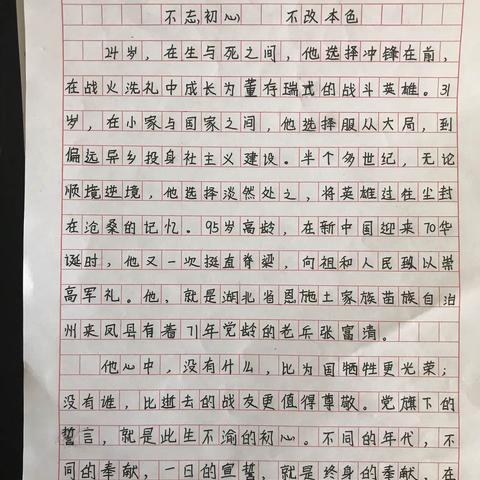 不忘初心 不改本色
24岁，在生与死之间，他选择冲锋在前，
在战火洗礼中成长为董存瑞式的战斗英雄。31
岁，在小家与国家之间，他选择服从大局，到
偏远异乡投身社主义建设。半个多世纪，无论
顺境逆境，他选择淡然处之，将英雄过往尘封
在沧桑的记忆。95岁高龄，在新中国迎来70华
诞时，他又一次挺直脊梁，向祖和人民致以崇
高军礼。他，就是湖北省恩施土家族苗族自治
州来凤县有着71年党龄的老兵张富清。
他心中，没有什么，比为国牺牲更光荣；
没有谁，比逝去的战友更值得尊敬。党旗下的
誓言，就是此生不渝的初心。不同的年代，不
同的奉献，一日的宣誓，就是终身的奉献，在